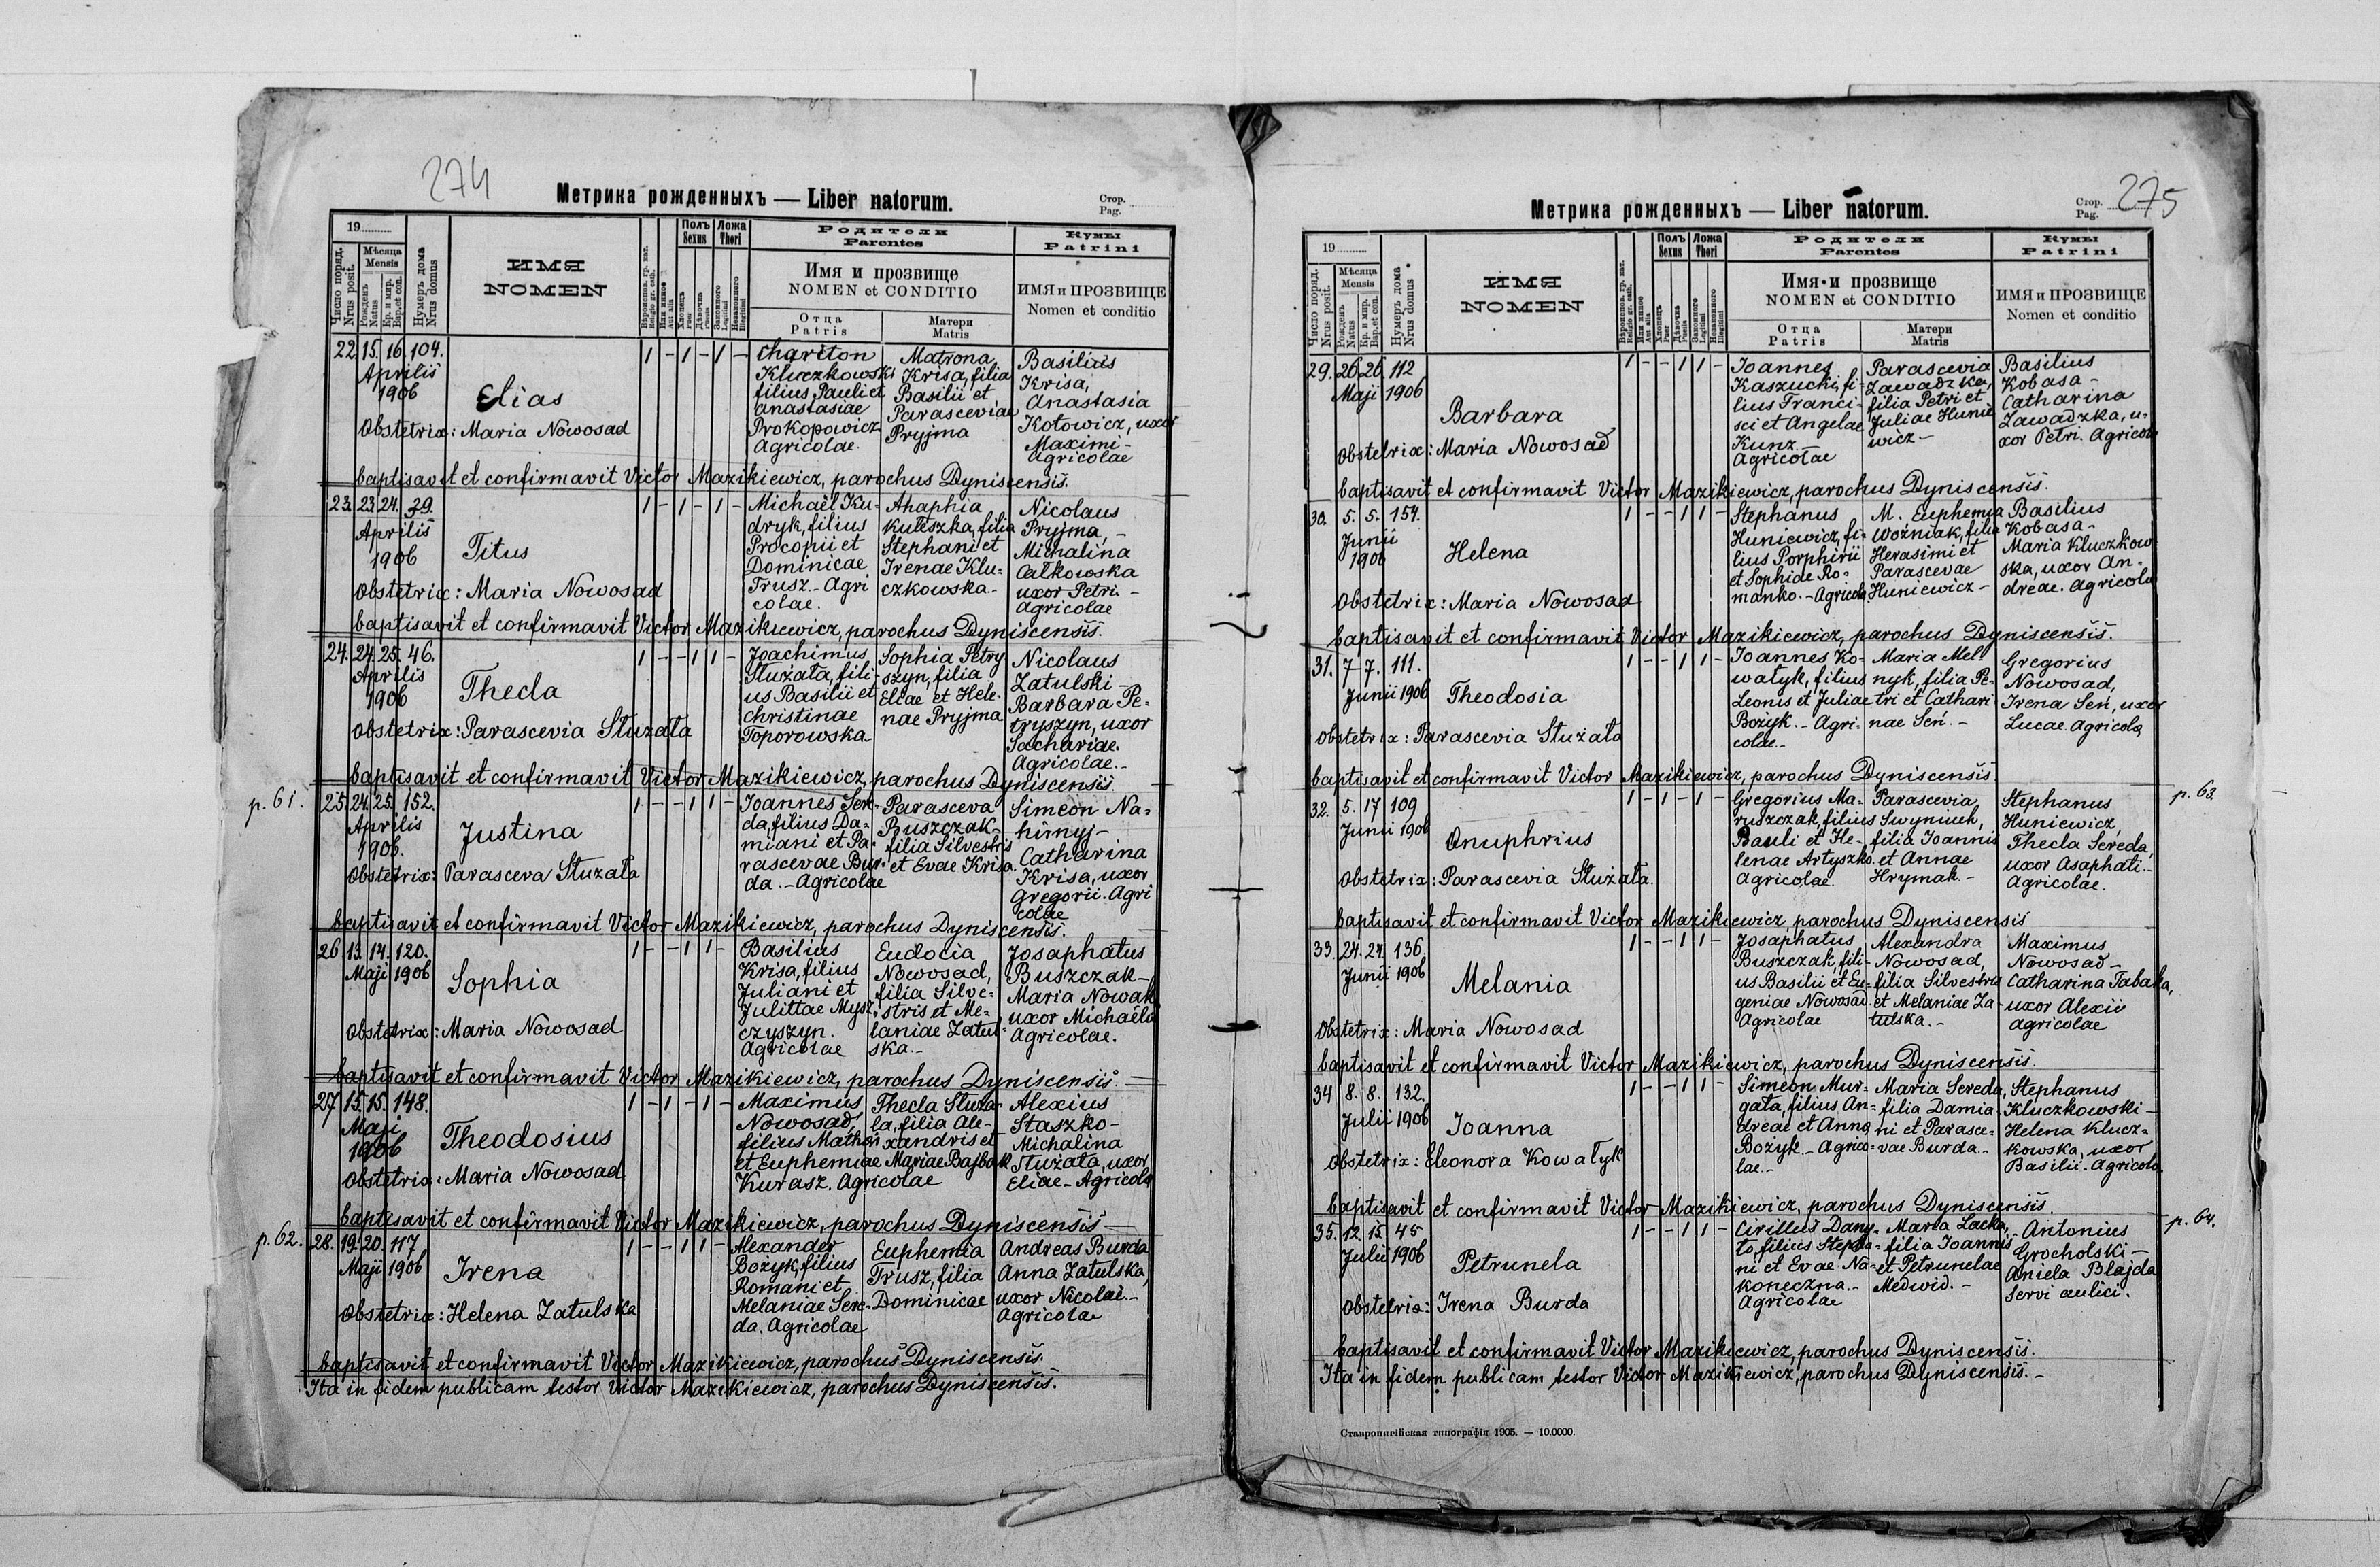 274
Метрика рожденныхъ — Liber natorum.
Стор.
Pag.
19
Число поряд.
Nrus posit.
Мѣсяца
Mensis
Рожденъ
Natus
Кр. и мир.
Bap. et con.
Нумеръ дома
Nrus domus
ИМЯ
NOMEN
Полъ
Sexus
Ложа
Thori
Родители
Parentes
Имя и прозвище
NOMEN et CONDITIO
Отца
Patris
Матери
Matris
Кумы
Patrini
ИМЯ и ПРОЗВИЩЕ
Nomen et conditio
22. 15. 16. 104.
Aprilis
1906
Elias
Obstetrix: Maria Nowosad
1 - 1 - 1 -
Chariton
Kluczkowski
filius Pauli et
Anastasiae
Prokopowicz
Agricolae.
Matrona
Krisa, filia
Basilii et
Parasceviae
Pryjma
Basilius
Krisa,
Anastasia
Kotowicz, uxor
Maximi-
Agricolae
baptisavit et confirmavit Victor Mazikiewicz, parochus Dyniscensis.
23. 23. 24. 29.
Aprilis
1906
Titus
Obstetrix: Maria Nowosad
1 - 1 - 1 -
Michaël Ku-
dryk, filius
Procopii et
Dominicae
Trusz - Agri
colae.
Ahaphia
Kuleszka, filia
Stephani et
Irenae Klu-
czkowska.-
Nicolaus
Pryjma, -
Michalina
Całkowska
uxor Petri -
Agricolae
baptisavit et confirmavit Victor Mazikiewicz, parochus Dyniscensis.
24. 24. 25. 46.
Aprilis
1906
Thecla
Obstetrix: Parascevia Stużała
1 - - 1 1 -
Joachimus
Stużała, fili-
us Basilii et
Christinae
Toporowska
Sophia Petry
szyn, filia
Eliae et Hele-
nae Pryjma
Nicolaus
Zatulski -
Barbara Pe-
tryszyn, uxor
Sachariae.
Agricolae.-
baptisavit et confirmavit Victor Mazikiewicz, parochus Dyniscensis.
p. 61.
25. 24. 25. 152.
Aprilis
1906.
Justina
Obstetrix: Parasceva Stuzała
1 - - 1 1 -
Joannes Sere-
da, filius Da-
miani et Pa-
rascevae Bur-
da.-Agricolae
Parasceva
Buszczak-
filia Silvestris
et Evae Krisa.
Simeon Na-
hirnyj-
Catharina
Krisa, uxor
Gregorii. Agri
colae
baptisavit et confirmavit Victor Mazikiewicz, parochus Dyniscensis.
26 13. 14. 120.
Maji 1906
Sophia
Obstetrix: Maria Nowosad
1 - - 1 1 -
Basilius
Krisa, filius
Juliani et
Julittae Mysz-
czyszyn.
Agricolae
Eudocia
Nowosad,
filia Silve-
stris et Me-
laniae Zatul-
ska.-
Josaphatus
Buszczak-
Maria Nowak
uxor Michaelis
Agricolae.
baptisavit et confirmavit Victor Mazikiewicz, parochus Dyniscensis.
27 15. 15. 148.
Maji
1906
Theodosius
Obstetrix: Maria Nowosad
1 - 1 - 1 -
Maximus
Nowosad,
filius Mathei
et Euphemiae
Kurasz. Agricolae
Thecla Stuża-
ła, filia Ale-
xandris et
Mariae Bajbak
Alexius
Staszko-
Michalina
Stużała, uxor
Eliae-Agricolae
baptisavit et confirmavit Victor Mazikiewicz, parochus Dyniscensis
p. 62.
28. 19. 20. 117
Maji 1906
Irena
Obstetrix: Helena Zatulska
1 - - 1 1 -
Alexander
Bożyk, filius
Romani et
Melaniae Sere-
da. Agricolae
Euphemia
Trusz, filia
Dominicae
Andreas Burda
Anna Zatulska,
uxor Nicolai.-
Agricolae
baptisavit et confirmavit Victor Mazikiewicz, parochus Dyniscensis.
Ita in fidem publicam testor Victor Mazikiewicz, parochus Dyniscensis.
275
Метрика рожденныхъ — Liber natorum.
Стор.
Pag.
19
Число поряд.
Nrus posit.
Мѣсяца
Mensis
Рожденъ
Natus
Кр. и мир.
Bap. et con.
Нумеръ дома
Nrus domus
ИМЯ
NOMEN
Полъ
Sexus
Ложа
Thori
Родители
Parentes
Имя и прозвище
NOMEN et CONDITIO
Отца
Patris
Матери
Matris
Кумы
Patrini
ИМЯ и ПРОЗВИЩЕ
Nomen et conditio
29. 26 26. 112
Maji 1906
Barbara
Obstetrix: Maria Nowosad
1 - - 1 1 -
Joannes
Kaszucki, fi-
lius Franci-
sci et Angelae
Kunz -
Agricolae
Parascevia
Zawadzka,
filia Petri et
Juliae Hunie
wicz-
Basilius
Kobasa -
Catharina
Zawadzka, u-
xor Petri. Agricolae
baptisavit et confirmavit Victor Mazikiewicz, parochus Dyniscensis.
30. 5. 5. 154.
Junii
1906
Helena
Obstetrix: Maria Nowosad
1 - - 1 1 -
Stephanus
Huniewicz, fi-
lius Porphirii
et Sophiae Ro-
manko.-Agricolae
M. Euphemia
Woźniak, filia
Herasimi et
Parascevae
Huniewicz-
Basilius
Kobasa-
Maria Kluczkow
ska, uxor An-
dreae. Agricolae
baptisavit et confirmavit Victor Mazikiewicz, parochus Dyniscensis.
31. 7 7. 111.
Junii 1906
Theodosia
Obstetrix: Parascevia Stużała
1 - - 1 1 -
Joannes Ko-
wałyk, filius
Leonis et Juliae
Bożyk.-Agri-
colae.-
Maria Mel-
nyk, filia Pe-
tri et Cathari
nae Seń.-
Gregorius
Nowosad,
Irena Seń, uxor
Lucae. Agricolae
baptisavit et confirmavit Victor Mazikiewicz, parochus Dyniscensis
p. 63.
32. 5. 17 109
Junii 1906
Onuphrius
Obstetrix: Parascevia Stużała.
1 - 1 - 1 -
Gregorius Ma-
ruszczak, filius
Pauli et He-
lenae Artyszko.
Agricolae.
Parascevia
Swyniuch,
filia Joannis
et Annae
Hrymak-
Stephanus
Huniewicz,
Thecla Sereda,
uxor Asaphati.-
Agricolae.
baptisavit et confirmavit Victor Mazikiewicz, parochus Dyniscensis
33. 24. 24. 136.
Junii 1906
Melania
Obstetrix: Maria Nowosad
1 - - 1 1 -
Josaphatus
Buszczak, fili-
us Basilii et Eu-
geniae Nowosad
Agricolae
Alexandra
Nowosad,
filia Silvestris
et Melaniae Za-
tulska.-
Maximus
Nowosad-
Catharina Tabaka,
uxor Alexii
Agricolae
baptisavit et confirmavit Victor Mazikiewicz, parochus Dyniscensis.
34 8. 8. 132.
Julii 1906
Joanna
Obstetrix: Eleonora Kowałyk
1 - - 1 1 -
Simeon Mur-
gała, filius An-
dreae et Anna
Bożyk.-Agrico-
lae.-
Maria Sereda,
filia Damia-
ni et Parasce-
vae Burda.-
Stephanus
Kluczkowski-
Helena Klucz-
kowska, uxor
Basilii. Agricolae
baptisavit et confirmavit Victor Mazikiewicz, parochus Dyniscensis.
p. 64.
35. 12. 15. 45
Julii 1906
Petrunela
Obstetrix: Irena Burda
1 - - 1 1 -
Cirillus Dany-
to, filius Stepha-
ni et Evae Na-
koneczna.-
Agricolae
Maria Lacka,
filia Joannis
et Petrunelae
Medwid.-
Antonius
Grocholski-
Aniela Błajda
Servi aulici.
baptisavit et confirmavit Victor Mazikiewicz, parochus Dyniscensis.
Ita in fidem publicam testor Victor Mazikiewicz, parochus Dyniscensis.-
Ставропигійская типографія 1905. — 10.0000.